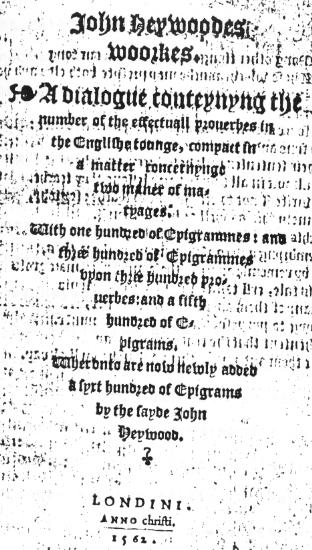 John Heywoodes
woorkes.
A dialogue conteynyng the
number of the effectuall prouerbes in
the Englishe tounge, compact in
a matter concernynge
two maner of ma-
ryages.
With one hundred of Epigrammes: and
three hundred of Epigrammes
vpon three hundred pro-
uerbes: and a fifth
hundred of E-
pigrams.
Wherevnto are now newly added
a syxt hundred of Epigrams
by the sayde John
Heywood.
LONDINI.
ANNO christi.
1562.